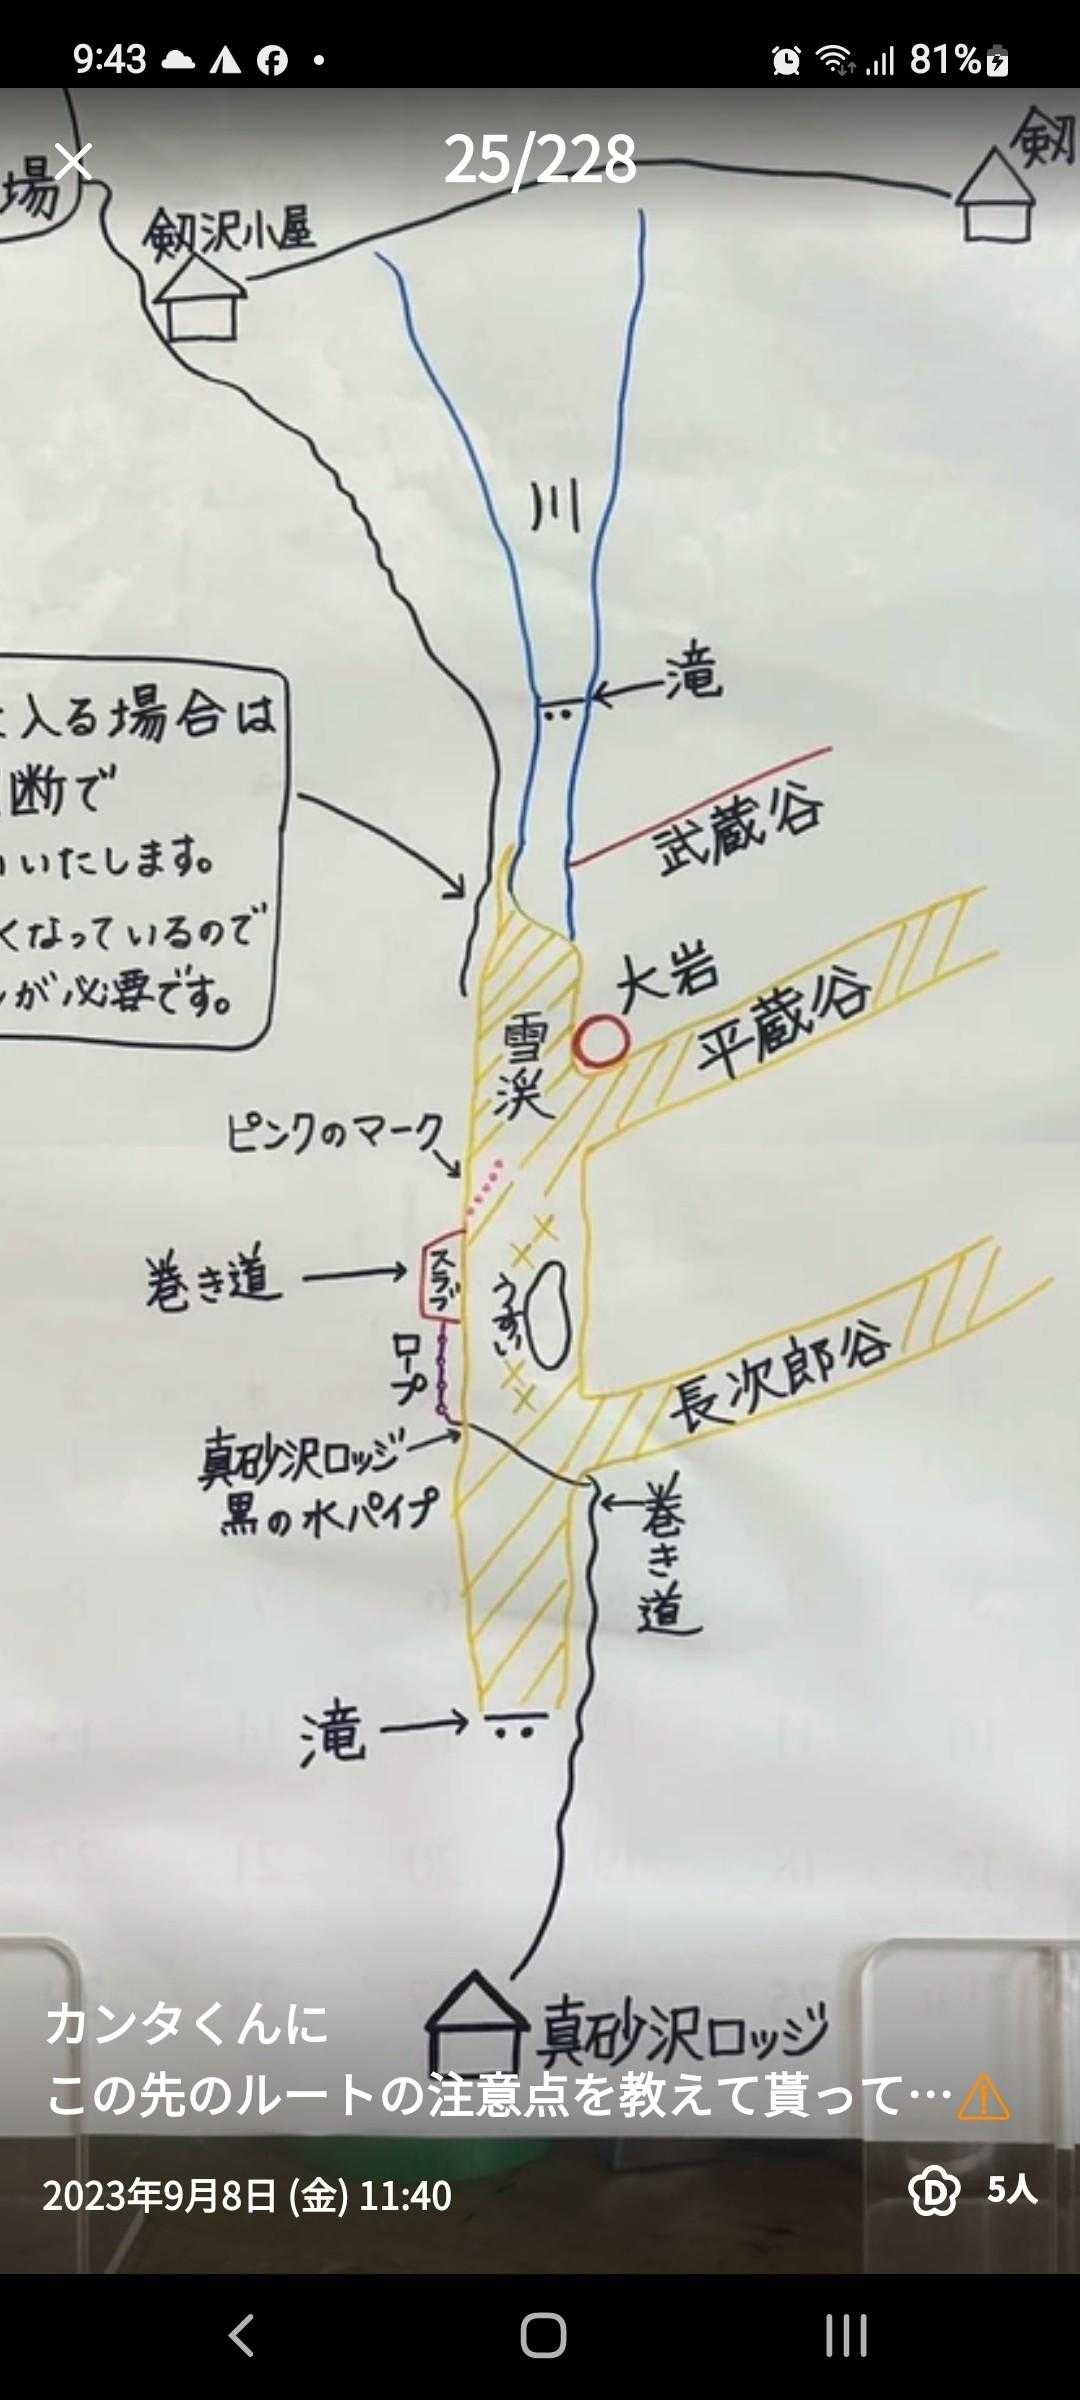 9:43
81%
25/228
場
剱
剱沢小屋
川
滝
入る場合は
断で
いたします。
くなっているので
が必要です。
武蔵谷
大岩
平蔵谷
雪渓
ピンクのマーク
巻き道
スラブ
うすい
ロープ
長次郎谷
真砂沢ロッジ
黒の水パイプ
巻き道
滝
真砂沢ロッジ
カンタくんに
この先のルートの注意点を教えて貰って…⚠
2023年9月8日 (金) 11:40
D
5人